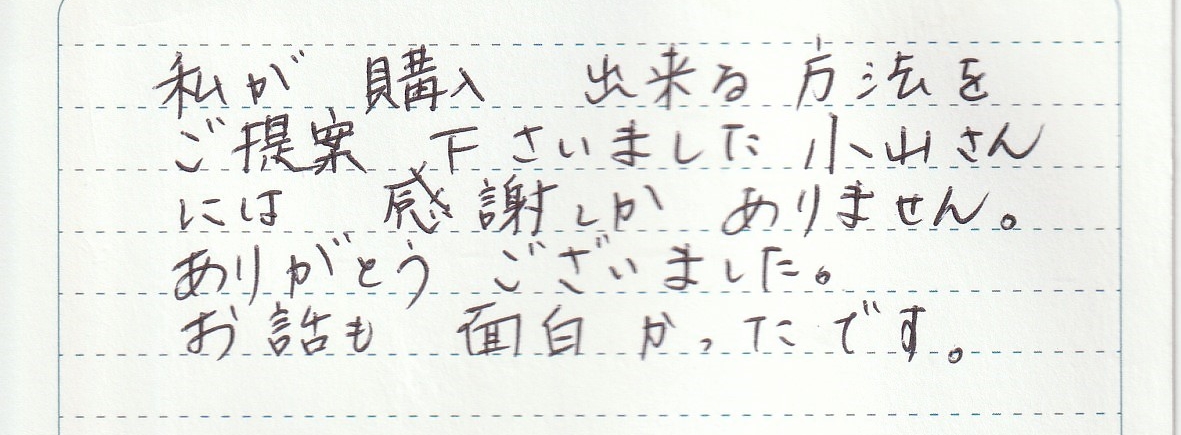 私が 購入 出来る方法を
ご提案 下さいました小山さん
には 感謝しか ありません。
ありがとう ございました。
お話も 面白かったです。